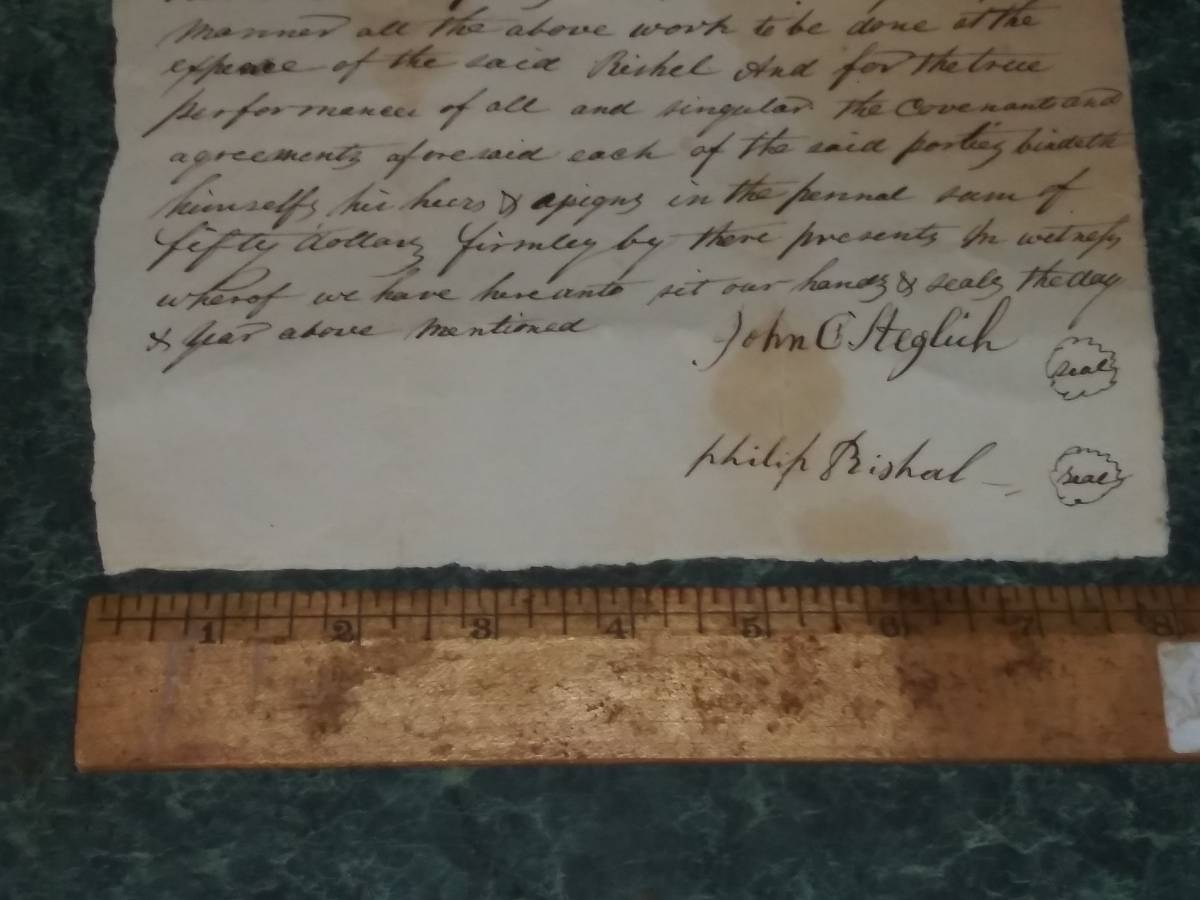 manner all the above work to be done at the
expence of the said Rishel And for the true
performance of all and singular the Covenants and
agreements aforesaid each of the said parties bindeth
himselfs his heirs & assigns in the pennal sum of
fifty dollars firmley by these presents In witness
wherof we have hereunto sit our hands & seals the day
& year above mentioned
John C Steglich seal
philip Rishel seal
1 2 3 4 5 6 7 8